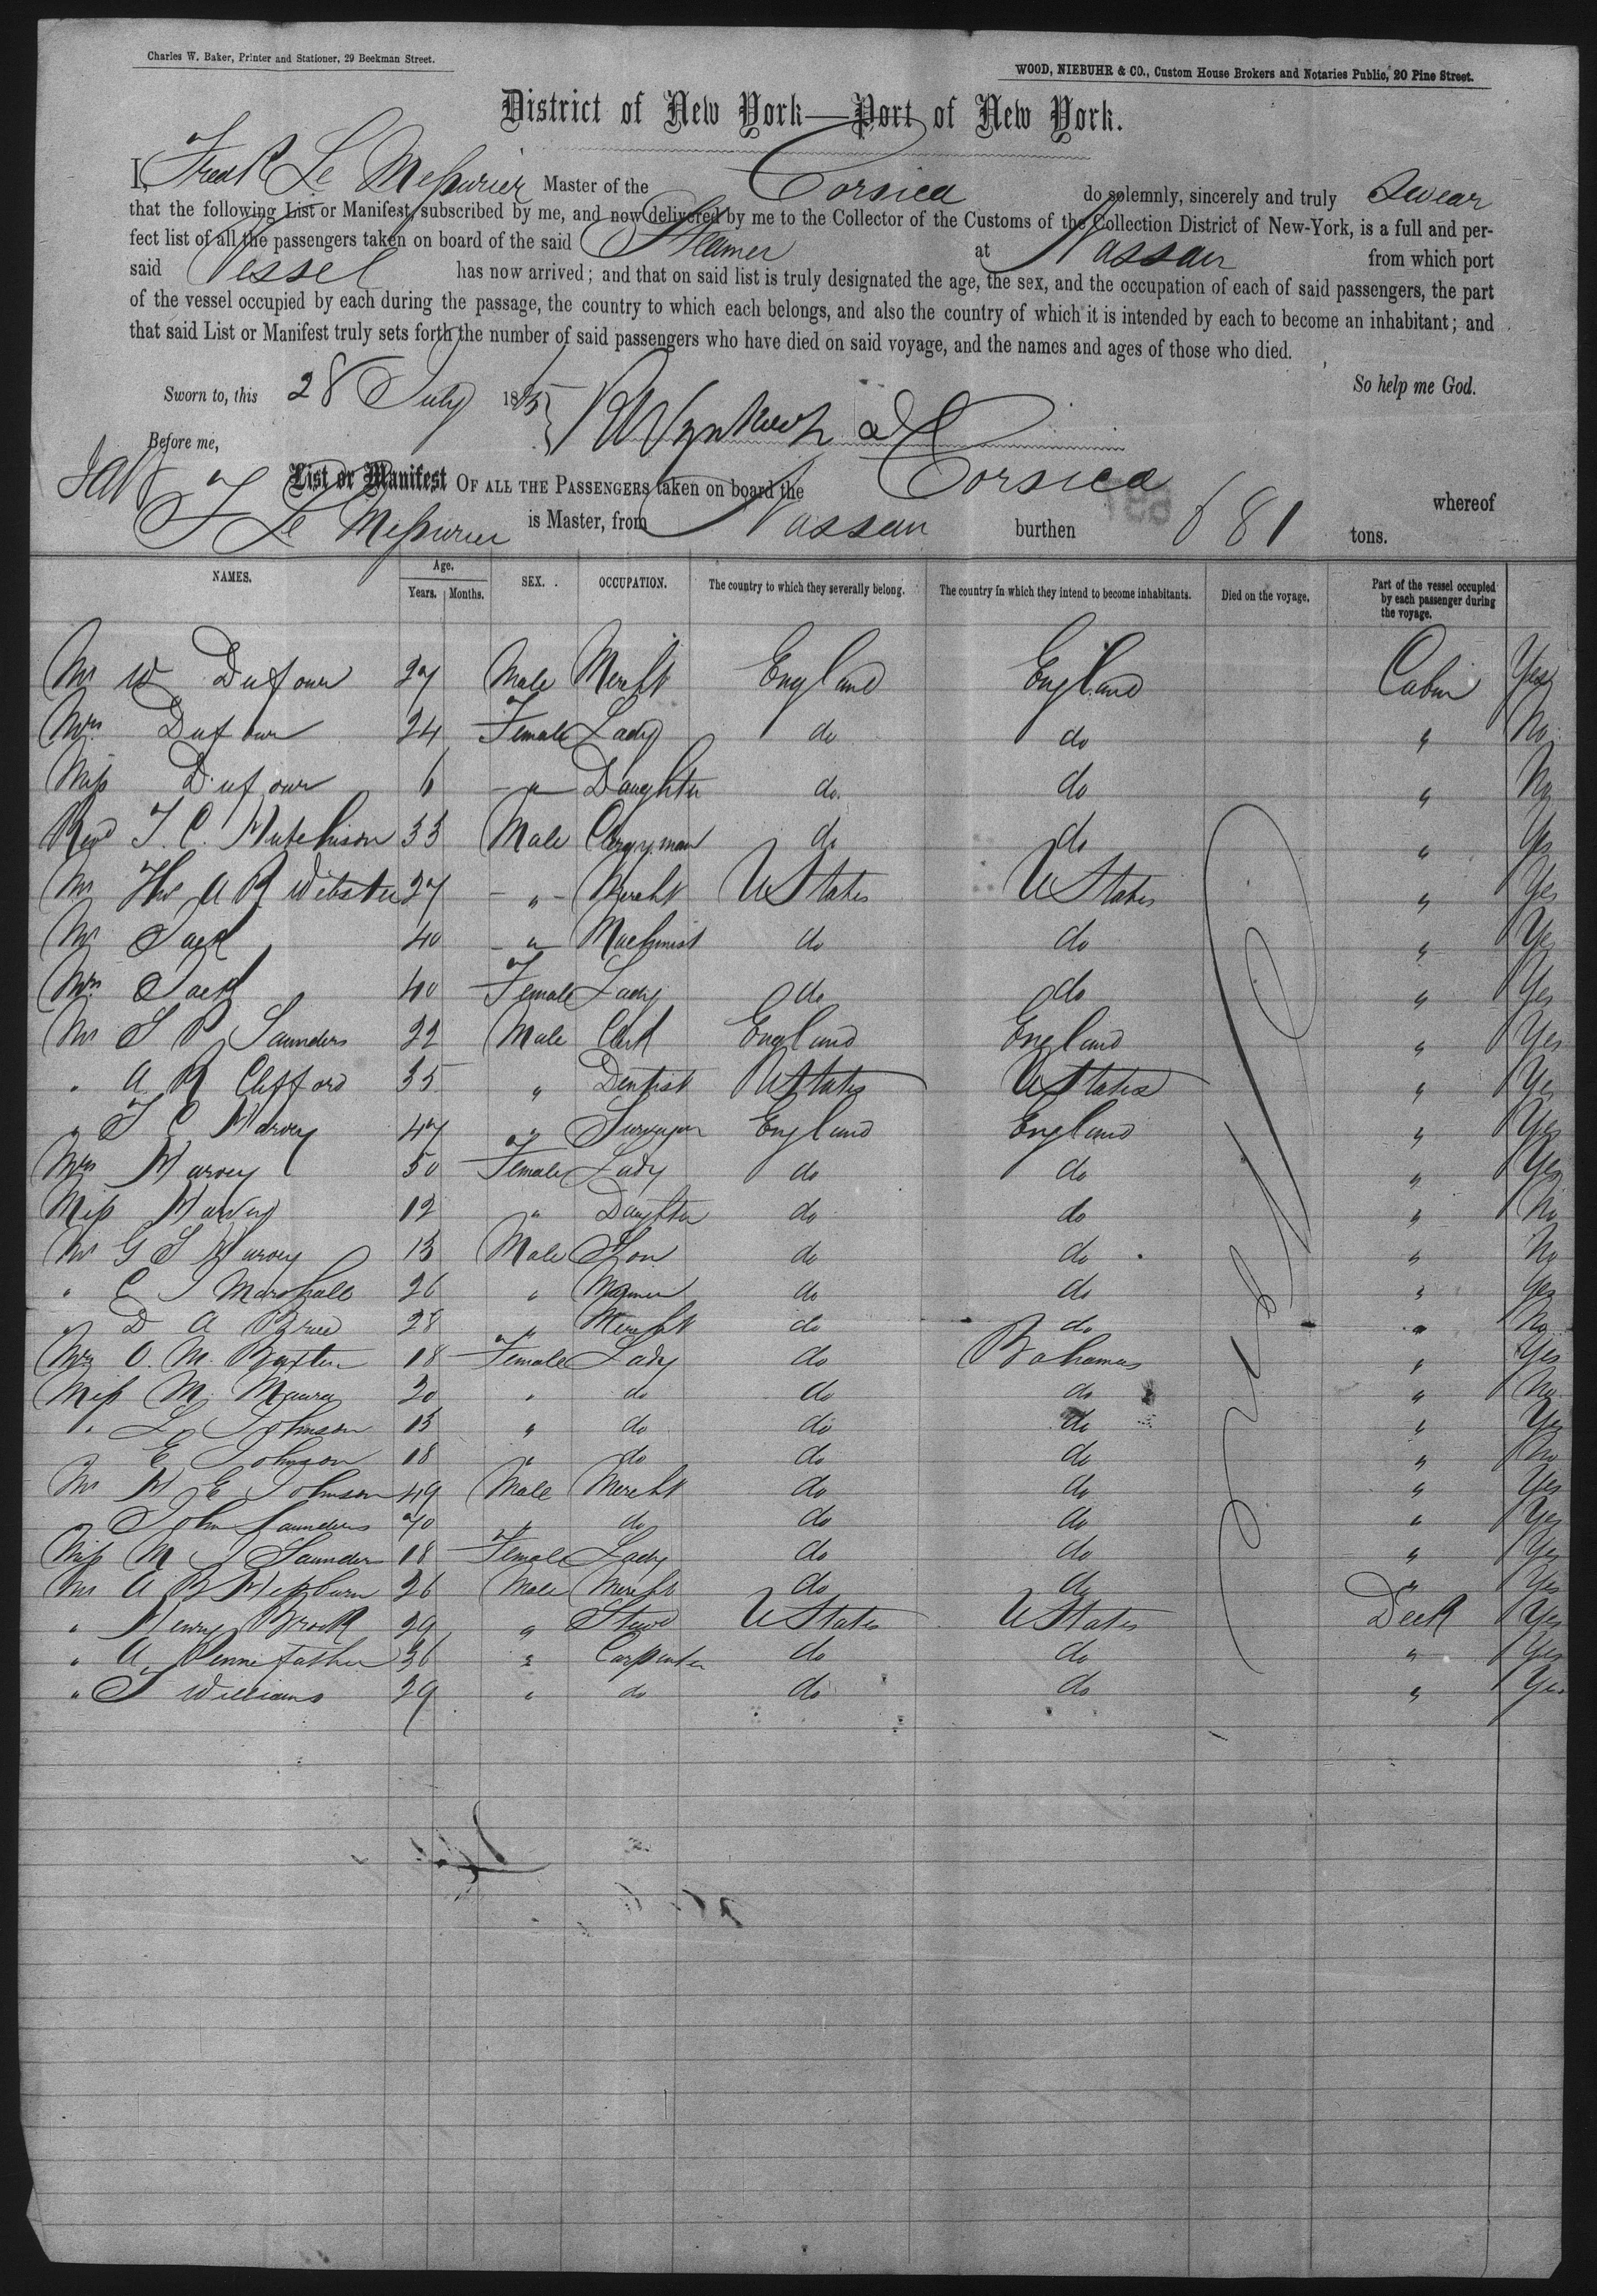 Charles W. Baker, Printer and Stationer, 29 Beekman Street.
WOOD, NIEBUHR & CO., Custom House Brokers and Notaries Public, 20 Pine Street.
District of New York—Port of New York.
I, Fredk Le Messurier Master of the Corsica do solemnly, sincerely and truly Swear
that the following List or Manifest, subscribed by me, and now delivered by me to the Collector of the Customs of the Collection District of New-York, is a full and per-
fect list of all the passengers taken on board of the said Steamer at Nassau from which port
said Vessel has now arrived; and that on said list is truly designated the age, the sex, and the occupation of each of said passengers, the part
of the vessel occupied by each during the passage, the country to which each belongs, and also the country of which it is intended by each to become an inhabitant; and
that said List or Manifest truly sets forth the number of said passengers who have died on said voyage, and the names and ages of those who died.
So help me God.
Sworn to, this 28 July 18
Before me,
List or Manifest OF ALL THE PASSENGERS taken on board the Corsica whereof
F Le Messurier is Master, from Nassau burthen 681 tons.
NAMES. Age. Years. Months. SEX. OCCUPATION. The country to which they severally belong. The country in which they intend to become inhabitants. Died on the voyage. Part of the vessel occupied by each passenger during the voyage.
Mr W Dufour 27 Male Mercht England England Cabin Yes
Mrs Dufour 24 Female Lady do do " No
Miss Dufour 6 " Daughter do. do " No
Revd T. C. Hutchison 33 Male Clergyman do do " Yes
Mr Thos A R Webster 27 " Mercht U States U States " Yes
Mr 40 " Machinist do do " Yes
Mrs 40 Female Lady do do " Yes
Mr S P Saunders 22 Male Clerk England England " Yes
" A R Clifford 35 " Dentist U States U States " Yes
" T C Harvey 47 " Surveyor England England " Yes
Mrs Harvey 50 Female Lady do do " Yes
Miss Harvey 12 " Daughter do do " No
Mr G S Harvey 13 Male Son do do " No
" C T Marshall 26 " do do " Yes
" D A Brice 28 " Mercht do do " No
Mrs O. M. Baxter 18 Female Lady do Bahamas " Yes
Miss M. Maura 20 " do do do " No
" L Johnson 15 " do do do " Yes
" E Johnson 18 " do do do " No
Mr H E Johnson 49 Male Mercht do do " Yes
" John Saunders 70 " do do do " Yes
Miss M J Saunders 18 Female Lady do do " Yes
Mr A B Hepburn 26 Male Mercht do do " Yes
" Henry Brook 29 " Stewd U States U States Deck Yes
" A. Pennefather 36 " Carpenter do do " Yes
" J Williams 29 " do do do " Yes